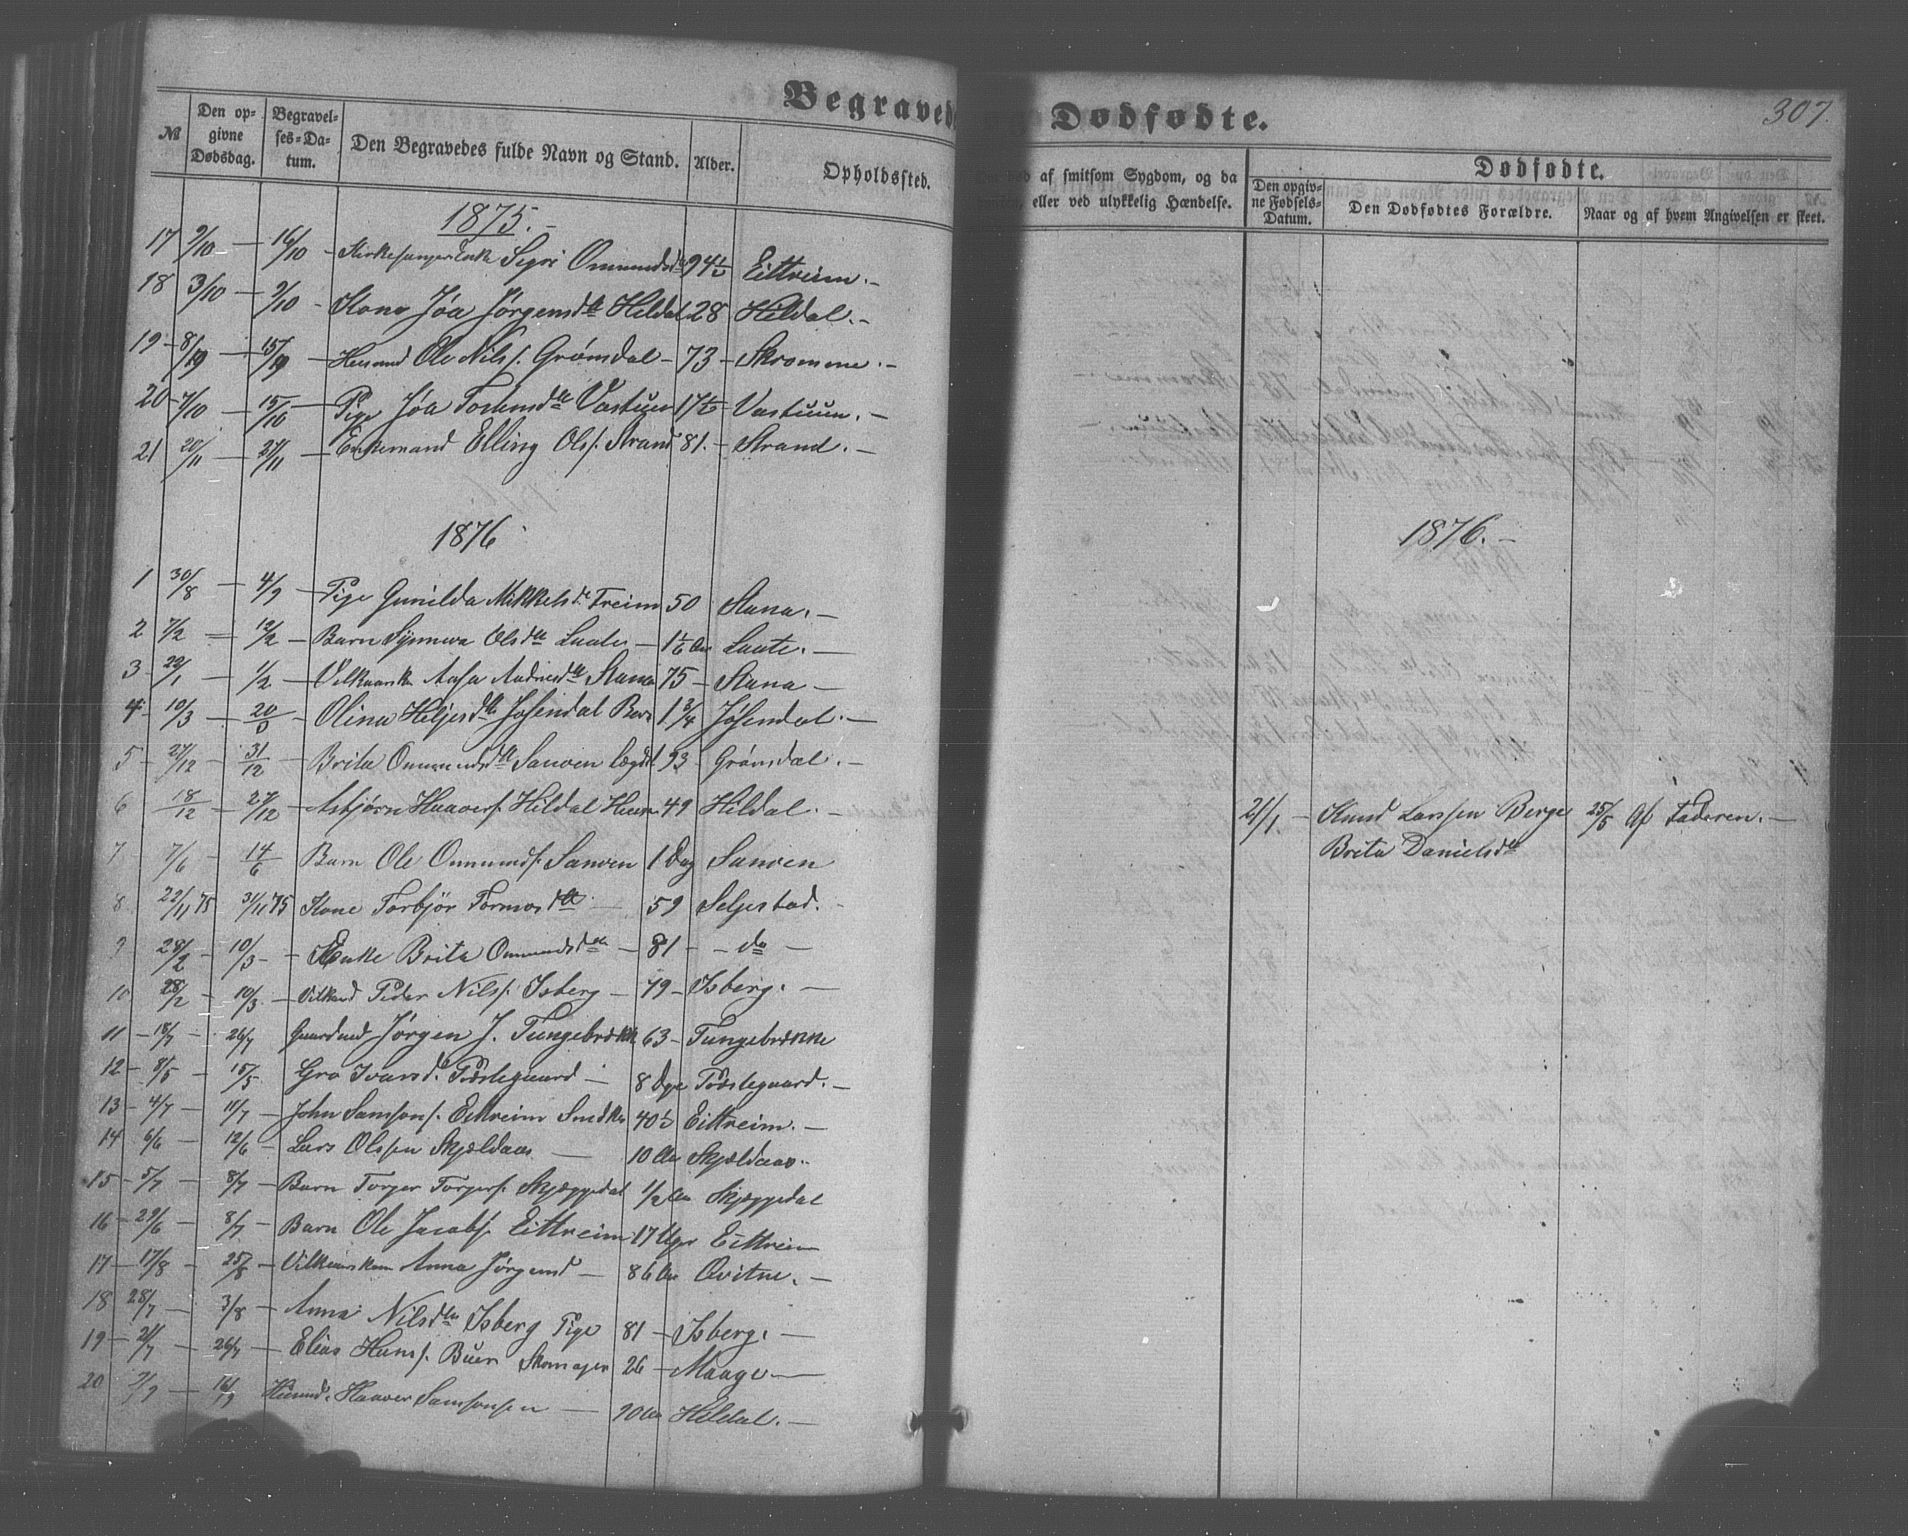 Begravede
№ Den opgivne Dødsdag. Begravelses-Datum. Den Begravedes fulde Navn og Stand. Alder. Opholdssted.
1875.-
17 9/10 — 16/10 – Kirkesanger Enke Sigri Omundsd 94½ Eittreim.-
18 3/10 — 9/10 – Kona Jóa Jørgensdtr Hildal 28 Hildal.-
19 – 8/19 — 15/19 – Husmd Ole Nilss. Grønsdal – 73 – Skromme.-
20 – 7/10 — 15/10 – Pige Jóa Torkensdtr Vastuun 17½ Vastuun.-
21 20/11 — 27/11 – Enkemand Elling Olss. Strand 81.– Strand.-
1876
1 30/8 — 4/9 – Pige Gunilda Mikkelsd. Freim 50 Stana.-
2 7/2 = 12/2 – Barn Synneva Olsdtr Laate – 1⅙ Aar Laate.—
3 22/1 — 1/2 – Vilkaarsk Aasa Andriesdtr Stana 75 – Stana —
4 – 10/3 — 20/3 – Olina Heljesdtr Jøsendal Barn 1¾ Jøsendal.—
5 – 27/12 – 31/12 – Brita Omundsdtr Sanven Lægdsl 93 – Grønsdal.-
6 18/12 – 27/12 – Asbjørn Haavers. Hildal Husm 49 – Hildal.-
7 7/6 – 14/6 – Barn Ole Ommunds. Sanven 1 Dag Sanven
8 22/11 75 31/11 75 Kone Torbjør Tormosdtr — 59 Seljestad.-
9 28/2 – 10/3 – Enke Brita Omundsdtr — 81 – – do —
10 28/2 – 10/3 – Vilkmd Peder Nilss. Isberg – 79 – Isberg. —
11 – 18/7 – 26/7 Gaardmd Jørgen J. Tungebrække 63 – Tungebrække
12 – 8/5 – 15/5 – Gro Ivarsd. Prestegaard – 8 Dge Prestegaard.—
13 – 4/7 – 11/7 – John Samsons. Eittreim Smdkr 40½ Eittreim.—
14 6/6 – 12/6 – Lars Olssen Skjældaas — 10 Aar Skjældaas.-
15 – 5/7 – 8/7 – Barn Torger Torgers. Skjæggedal ½ Aar Skjæggedal
16 – 29/6 – 8/7 – Barn Ole Jacobs. Eittreim 17 Uger Eittreim
17 – 17/8 – 25/8 – Vilkaarskone Anna Jørgensd – 86 Aar Qvitne.—
18 28/7 – 3/8 – Anna Nilsdtr Isberg Pige 81 – Isberg. —
19 – 21/7 – 26/7 – Elias Hanss. Buer Skomager 26 – Maage —
20 7/9 – 16/9 Husmd. Haaver Samsonsen — 70 Aar Hildal.—
Dødfødte.
307.
af smitsom Sygdom, og da
eller ved ulykkelig Hændelse.
Dødfødte.
Den opgivne Fødsels-Datum. Den Dødfødtes Forældre. Naar og af hvem Angivelsen er skeet.
1876.-
21/1 – Knud Larssen Berge 25/5 af Faderen.—
Brita Danielsdtr